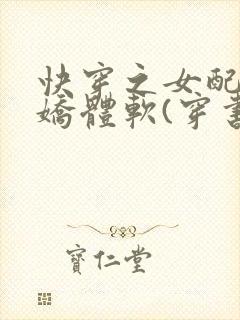 快穿之女配
嬌體軟(穿書
寶仁堂